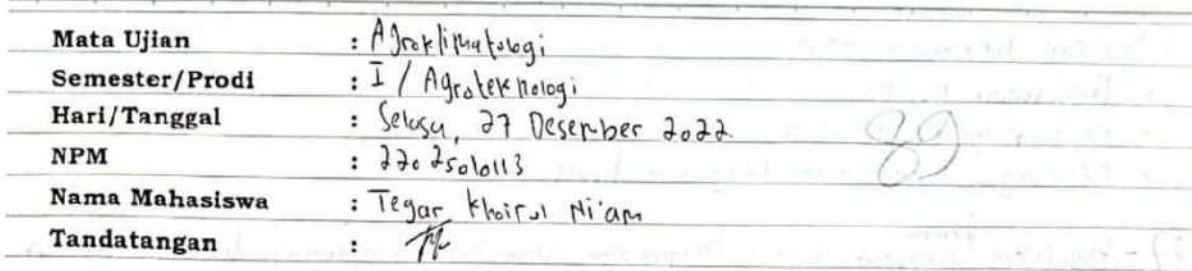 Mata Ujian : Agroklimatologi
Semester/Prodi : I / Agroteknologi
Hari/Tanggal : Selasa, 27 Desember 2022
NPM : 22025010113
Nama Mahasiswa : Tegar Khoirul Ni'am
Tandatangan :
89